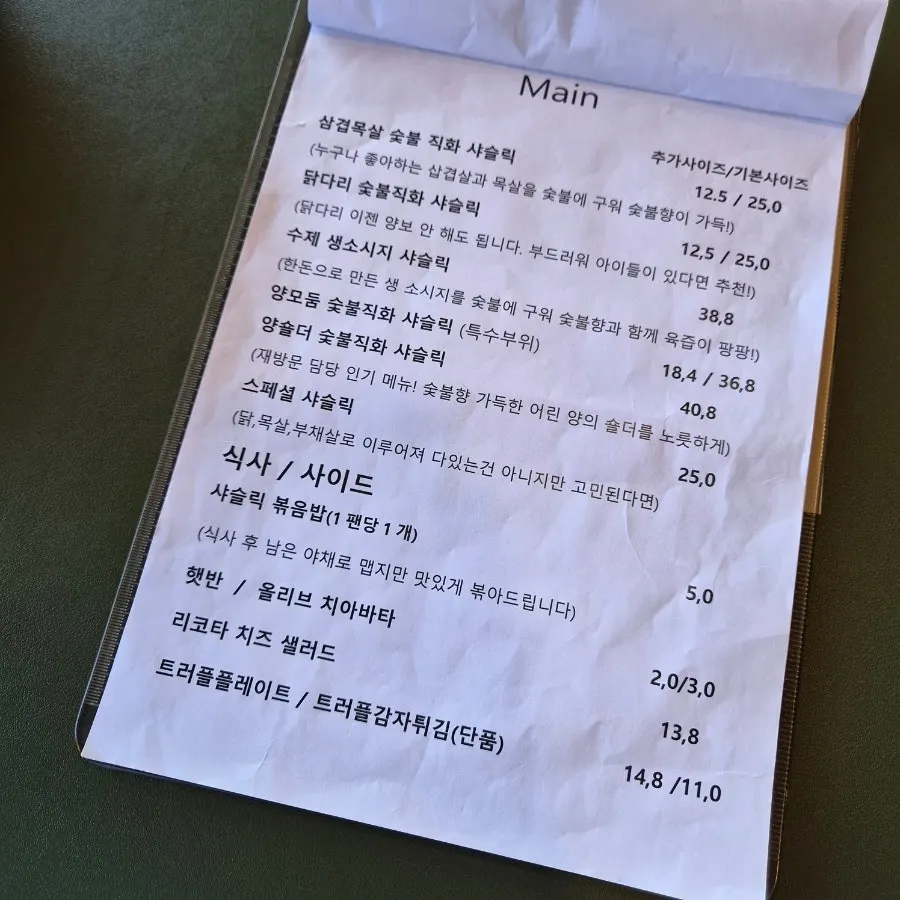 Main
추가사이즈/기본사이즈
삼겹목살 숯불 직화 샤슬릭 12.5 / 25,0
(누구나 좋아하는 삼겹살과 목살을 숯불에 구워 숯불향이 가득!)
닭다리 숯불직화 샤슬릭 12,5 / 25,0
(닭다리 이젠 양보 안 해도 됩니다. 부드러워 아이들이 있다면 추천!)
수제 생소시지 샤슬릭 38,8
(한돈으로 만든 생 소시지를 숯불에 구워 숯불향과 함께 육즙이 팡팡!)
양모둠 숯불직화 샤슬릭 (특수부위) 18,4 / 36,8
양숄더 숯불직화 샤슬릭 40,8
(재방문 담당 인기 메뉴! 숯불향 가득한 어린 양의 숄더를 노릇하게)
스페셜 샤슬릭 25,0
(닭,목살,부채살로 이루어져 다있는건 아니지만 고민된다면)
식사 / 사이드
샤슬릭 볶음밥(1 팬당 1 개) 5,0
(식사 후 남은 야채로 맵지만 맛있게 볶아드립니다)
햇반 / 올리브 치아바타 2,0/3,0
리코타 치즈 샐러드 13,8
트러플플레이트 / 트러플감자튀김(단품) 14,8 /11,0